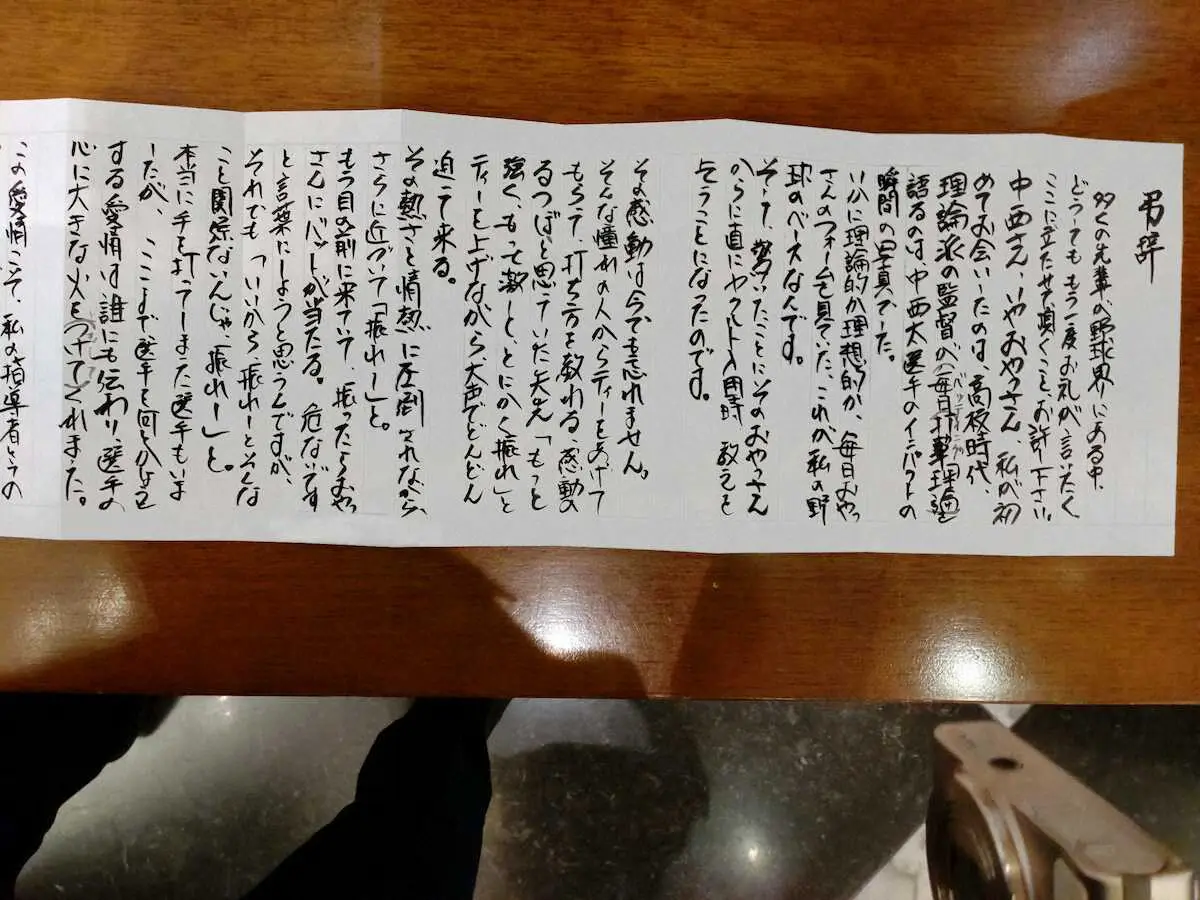 弔辞
多くの先輩が野球界にある中、
どうしても もう一度お礼が言いたく
ここに立たせて頂くことお許し下さい。
中西さん、いやおやっさん、私が初
めてお会いしたのは、高校時代、
理論派の監督が毎日打撃理論を
バッティング
語るのは、中西太選手のインパクトの
瞬間の写真でした。
いかに理論的か理想的か、毎日おやっ
さんのフォームを見てた、これが私の野
球のベースなんです。
そして、驚いたことにそのおやっさん
からに直にヤクルト入団時 教えを
乞うことになったのです。
その感動は今でも忘れません。
そんな憧れの人からティーをあげて
もらって、打ち方を教わる、感動の
るつぼと思っていた矢先「もっと
強く、もって激しく、とにかく振れ」と
ティーを上げながら、大声でどんどん
迫って来る。
その熱さと情熱に圧倒されながら、
さらに近づいて「振れー」と。
もう目の前に来ていて、振ったらおやっ
さんにバットが当たる。危ないです
と言葉にしようと思うんですが、
それでも「いいから、振れーとそんな
こと関係ないんじゃ、振れー」と。
本当に手を打ってしまった選手もいま
したが、ここまで選手を何とかしよと
する愛情は誰にも伝わり、選手の
心に大きな火をつけてくれました。
この愛情こそ、私の指導者としての